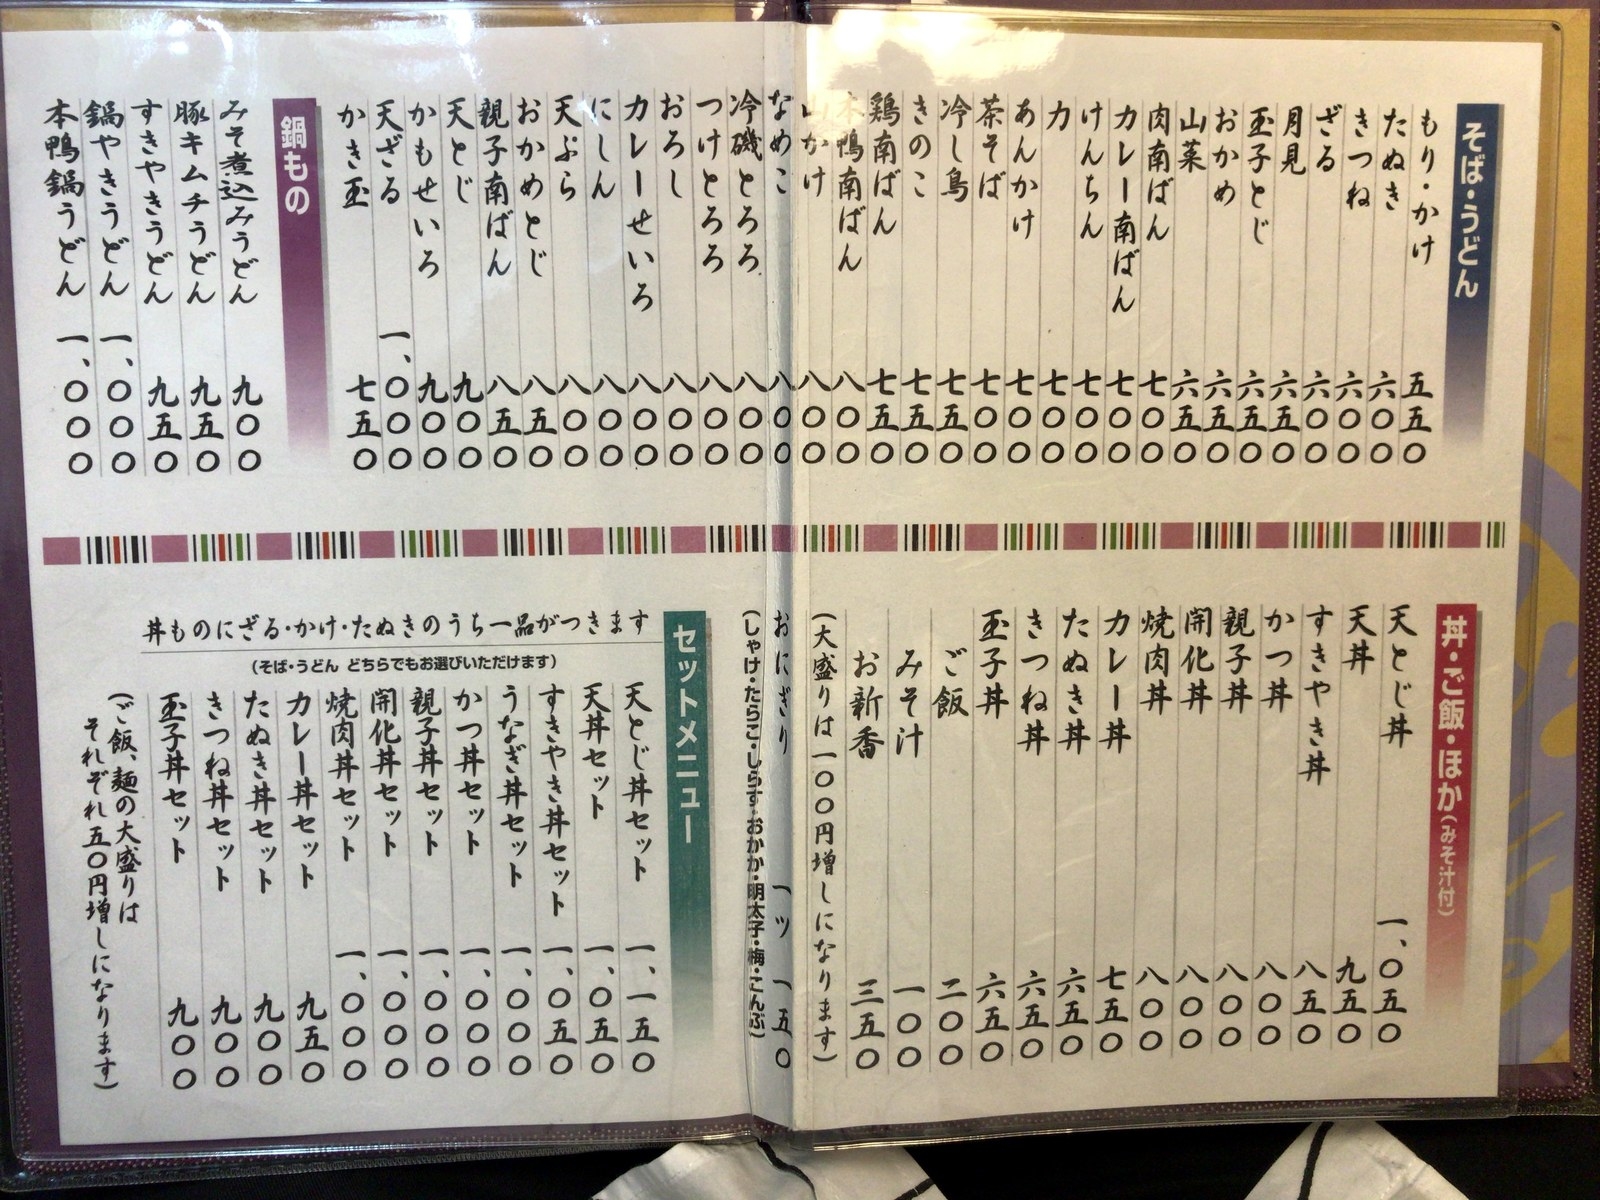 そば・うどん
もり・かけ 五五〇
たぬき 六〇〇
きつね 六〇〇
ざる 六〇〇
月見 六五〇
玉子とじ 六五〇
おかめ 六五〇
山菜 六五〇
肉南ばん 七〇〇
カレー南ばん 七〇〇
けんちん 七〇〇
力 七〇〇
あんかけ 七〇〇
茶そば 七〇〇
冷し鳥 七五〇
きのこ 七五〇
鶏南ばん 七五〇
本鴨南ばん 八〇〇
山かけ 八〇〇
なめこ 八〇〇
冷磯とろろ 八〇〇
つけとろろ 八〇〇
おろし 八〇〇
カレーせいろ 八〇〇
にしん 八〇〇
天ぷら 八〇〇
おかめとじ 八五〇
親子南ばん 八五〇
天とじ 九〇〇
かもせいろ 九〇〇
天ざる 一、〇〇〇
かき玉 七五〇
鍋もの
みそ煮込みうどん 九〇〇
豚キムチうどん 九五〇
すきやきうどん 九五〇
鍋やきうどん 一、〇〇〇
本鴨鍋うどん 一、〇〇〇
丼・ご飯・ほか(みそ汁付)
天とじ丼 一、〇五〇
天丼 九五〇
すきやき丼 八五〇
かつ丼 八〇〇
親子丼 八〇〇
開化丼 八〇〇
焼肉丼 八〇〇
カレー丼 七五〇
たぬき丼 六五〇
きつね丼 六五〇
玉子丼 六五〇
ご飯 二〇〇
みそ汁 一〇〇
お新香 三五〇
(大盛りは一〇〇円増しになります)
おにぎり 一ッ 一五〇
(しゃけ・たらこ・しらす・おかか・明太子・梅・こんぶ)
セットメニュー
丼ものにざる・かけ・たぬきのうち一品がつきます
(そば・うどん どちらでもお選びいただけます)
天とじ丼セット 一、一五〇
天丼セット 一、〇五〇
すきやき丼セット 一、〇五〇
うなぎ丼セット 一、〇〇〇
かつ丼セット 一、〇〇〇
親子丼セット 一、〇〇〇
開化丼セット 一、〇〇〇
焼肉丼セット 一、〇〇〇
カレー丼セット 九五〇
たぬき丼セット 九〇〇
きつね丼セット 九〇〇
玉子丼セット 九〇〇
(ご飯、麺の大盛りは
それぞれ五〇円増しになります)